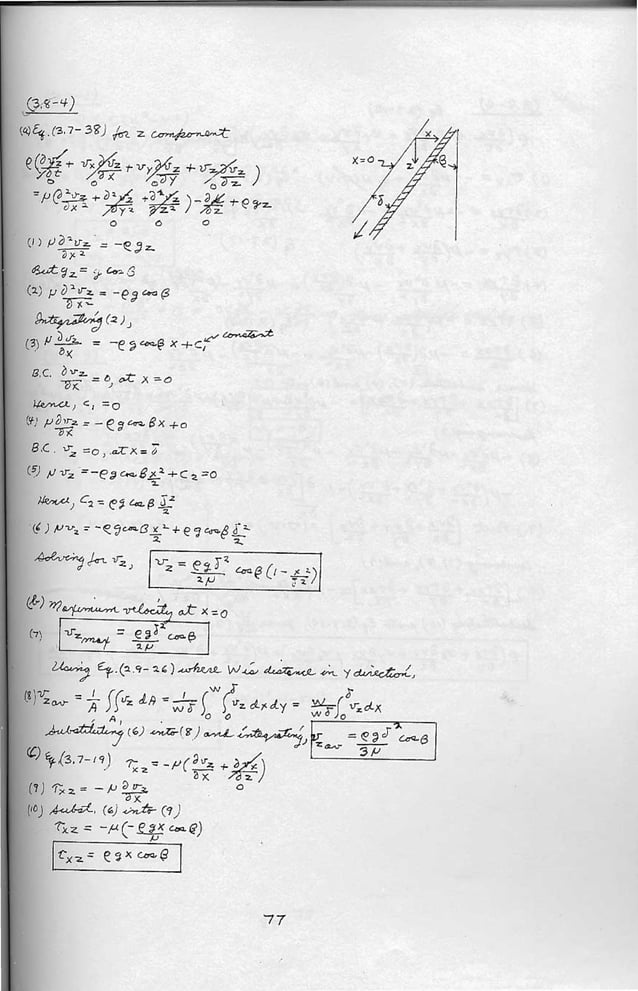 (3.8-4)
(a) Eq. (3.7-38) for z component
ρ(∂vz/∂t + vx ∂vz/∂x + vy ∂vz/∂y + vz ∂vz/∂z)
0 0 0 0
= μ(∂²vz/∂x² + ∂²vz/∂y² + ∂²vz/∂z²) - ∂p/∂z + ρgz
0 0 0
x=0 x z β δ
(1) μ ∂²vz/∂x² = -ρgz
But gz = g cos β
(2) μ ∂²vz/∂x² = -ρg cos β
Integrating (2),
(3) μ ∂vz/∂x = -ρg cos β x + c1 ← constant
B.C. ∂vz/∂x = 0, at x = 0
Hence, c1 = 0
(4) μ ∂vz/∂x = -ρg cos β x + 0
B.C. vz = 0, at x = δ
(5) μ vz = -ρg cos β x²/2 + C2 = 0
Hence, C2 = ρg cos β δ²/2
(6) μ vz = -ρg cos β x²/2 + ρg cos β δ²/2
Solving for vz, vz = ρgδ²/2μ cos β (1 - x²/δ²)
(b) Maximum velocity at x = 0
(7) vz max = ρgδ²/2μ cos β
Using Eq. (2.9-26) where W is distance in y direction,
(8) vz av = 1/A ∬ vz dA = 1/Wδ ∫₀^W ∫₀^δ vz dx dy = W/Wδ ∫₀^δ vz dx
A,
Substituting (6) into (8) and integrating, vz av = ρgδ²/3μ cos β
(c) Eq. (3.7-19) τxz = -μ(∂vz/∂x + ∂vx/∂z)
0
(9) τxz = -μ ∂vz/∂x
(10) Subst. (6) into (9)
τxz = -μ(-ρgx/μ cos β)
τxz = ρg x cos β
77